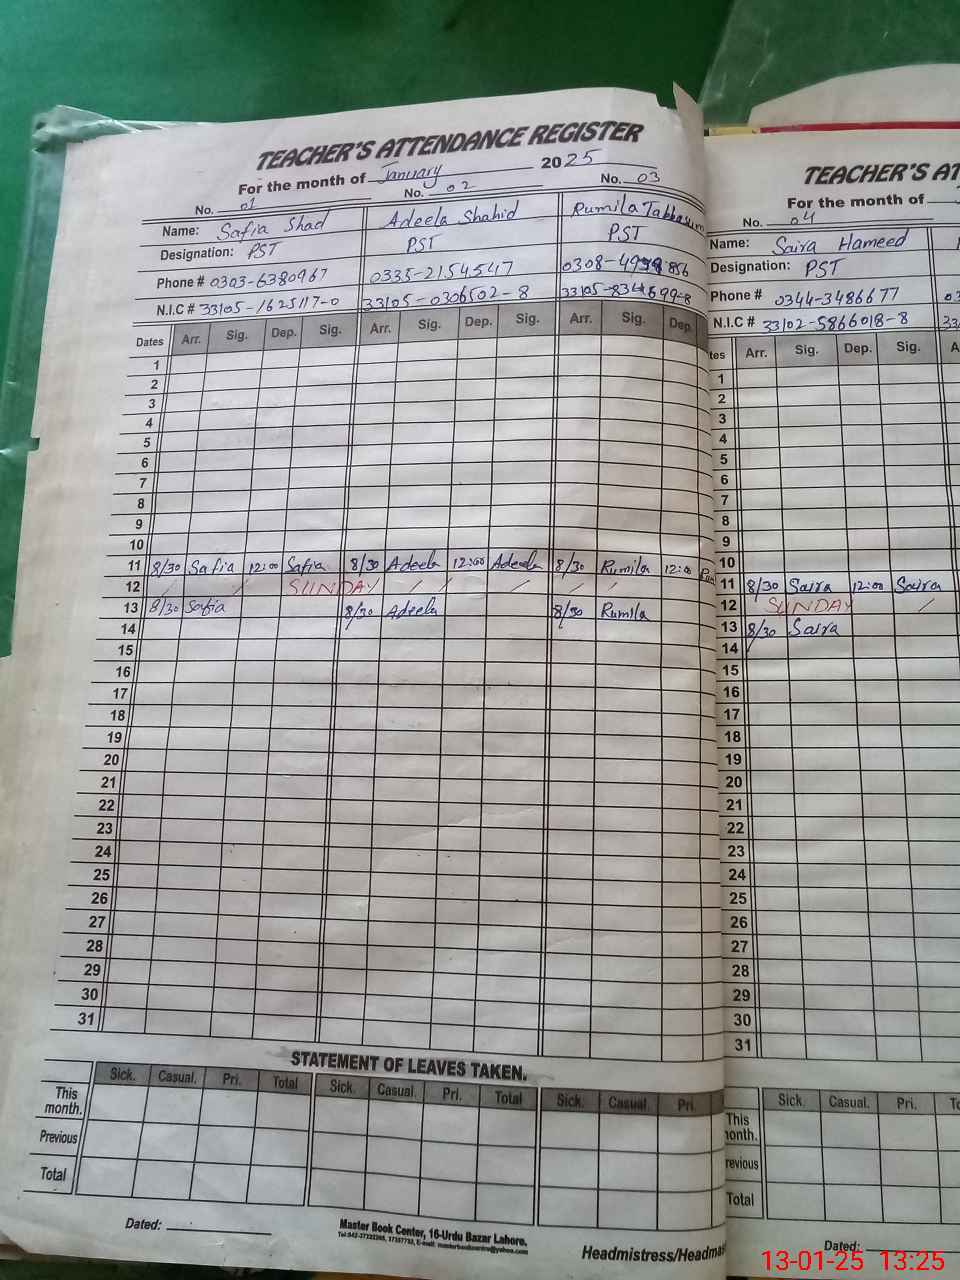 TEACHER'S ATTENDANCE REGISTER
For the month of January 2025
No. 01 No. 02 No. 03
Name: Safia Shad Adeela Shahid Rumila Tabbasum
Designation: PST PST PST
Phone # 0303-6380967 0335-2154547 0308-4
N.I.C # 33105-1625117-0 33105-0306502-8 33105-
Dates Arr. Sig. Dep. Sig. Arr. Sig. Dep. Sig. Arr. Sig. Dep.
1
2
3
4
5
6
7
8
9
10
11 8/30 Safia 12:00 Safia 8/30 Adeela 12:00 Adeela 8/30 Rumila 12:00
12 SUNDAY
13 8/30 Safia 8/30 Adeela 8/30 Rumila
14
15
16
17
18
19
20
21
22
23
24
25
26
27
28
29
30
31
STATEMENT OF LEAVES TAKEN.
Sick. Casual. Pri. Total Sick. Casual. Pri. Total Sick. Casual. Pri.
This month.
Previous
Total
Dated:
Master Book Center, 16-Urdu Bazar Lahore.
Headmistress/Headmas
TEACHER'S AT
For the month of
No. 04
Name: Saira Hameed
Designation: PST
Phone # 0344-3486677 03
N.I.C # 33102-5866018-8 33
tes Arr. Sig. Dep. Sig. A
1
2
3
4
5
6
7
8
9
10
11 8/30 Saira 12:00 Saira
12 SUNDAY
13 8/30 Saira
14
15
16
17
18
19
20
21
22
23
24
25
26
27
28
29
30
31
Sick. Casual. Pri. To
This
onth.
revious
Total
Dated:
13-01-25 13:25